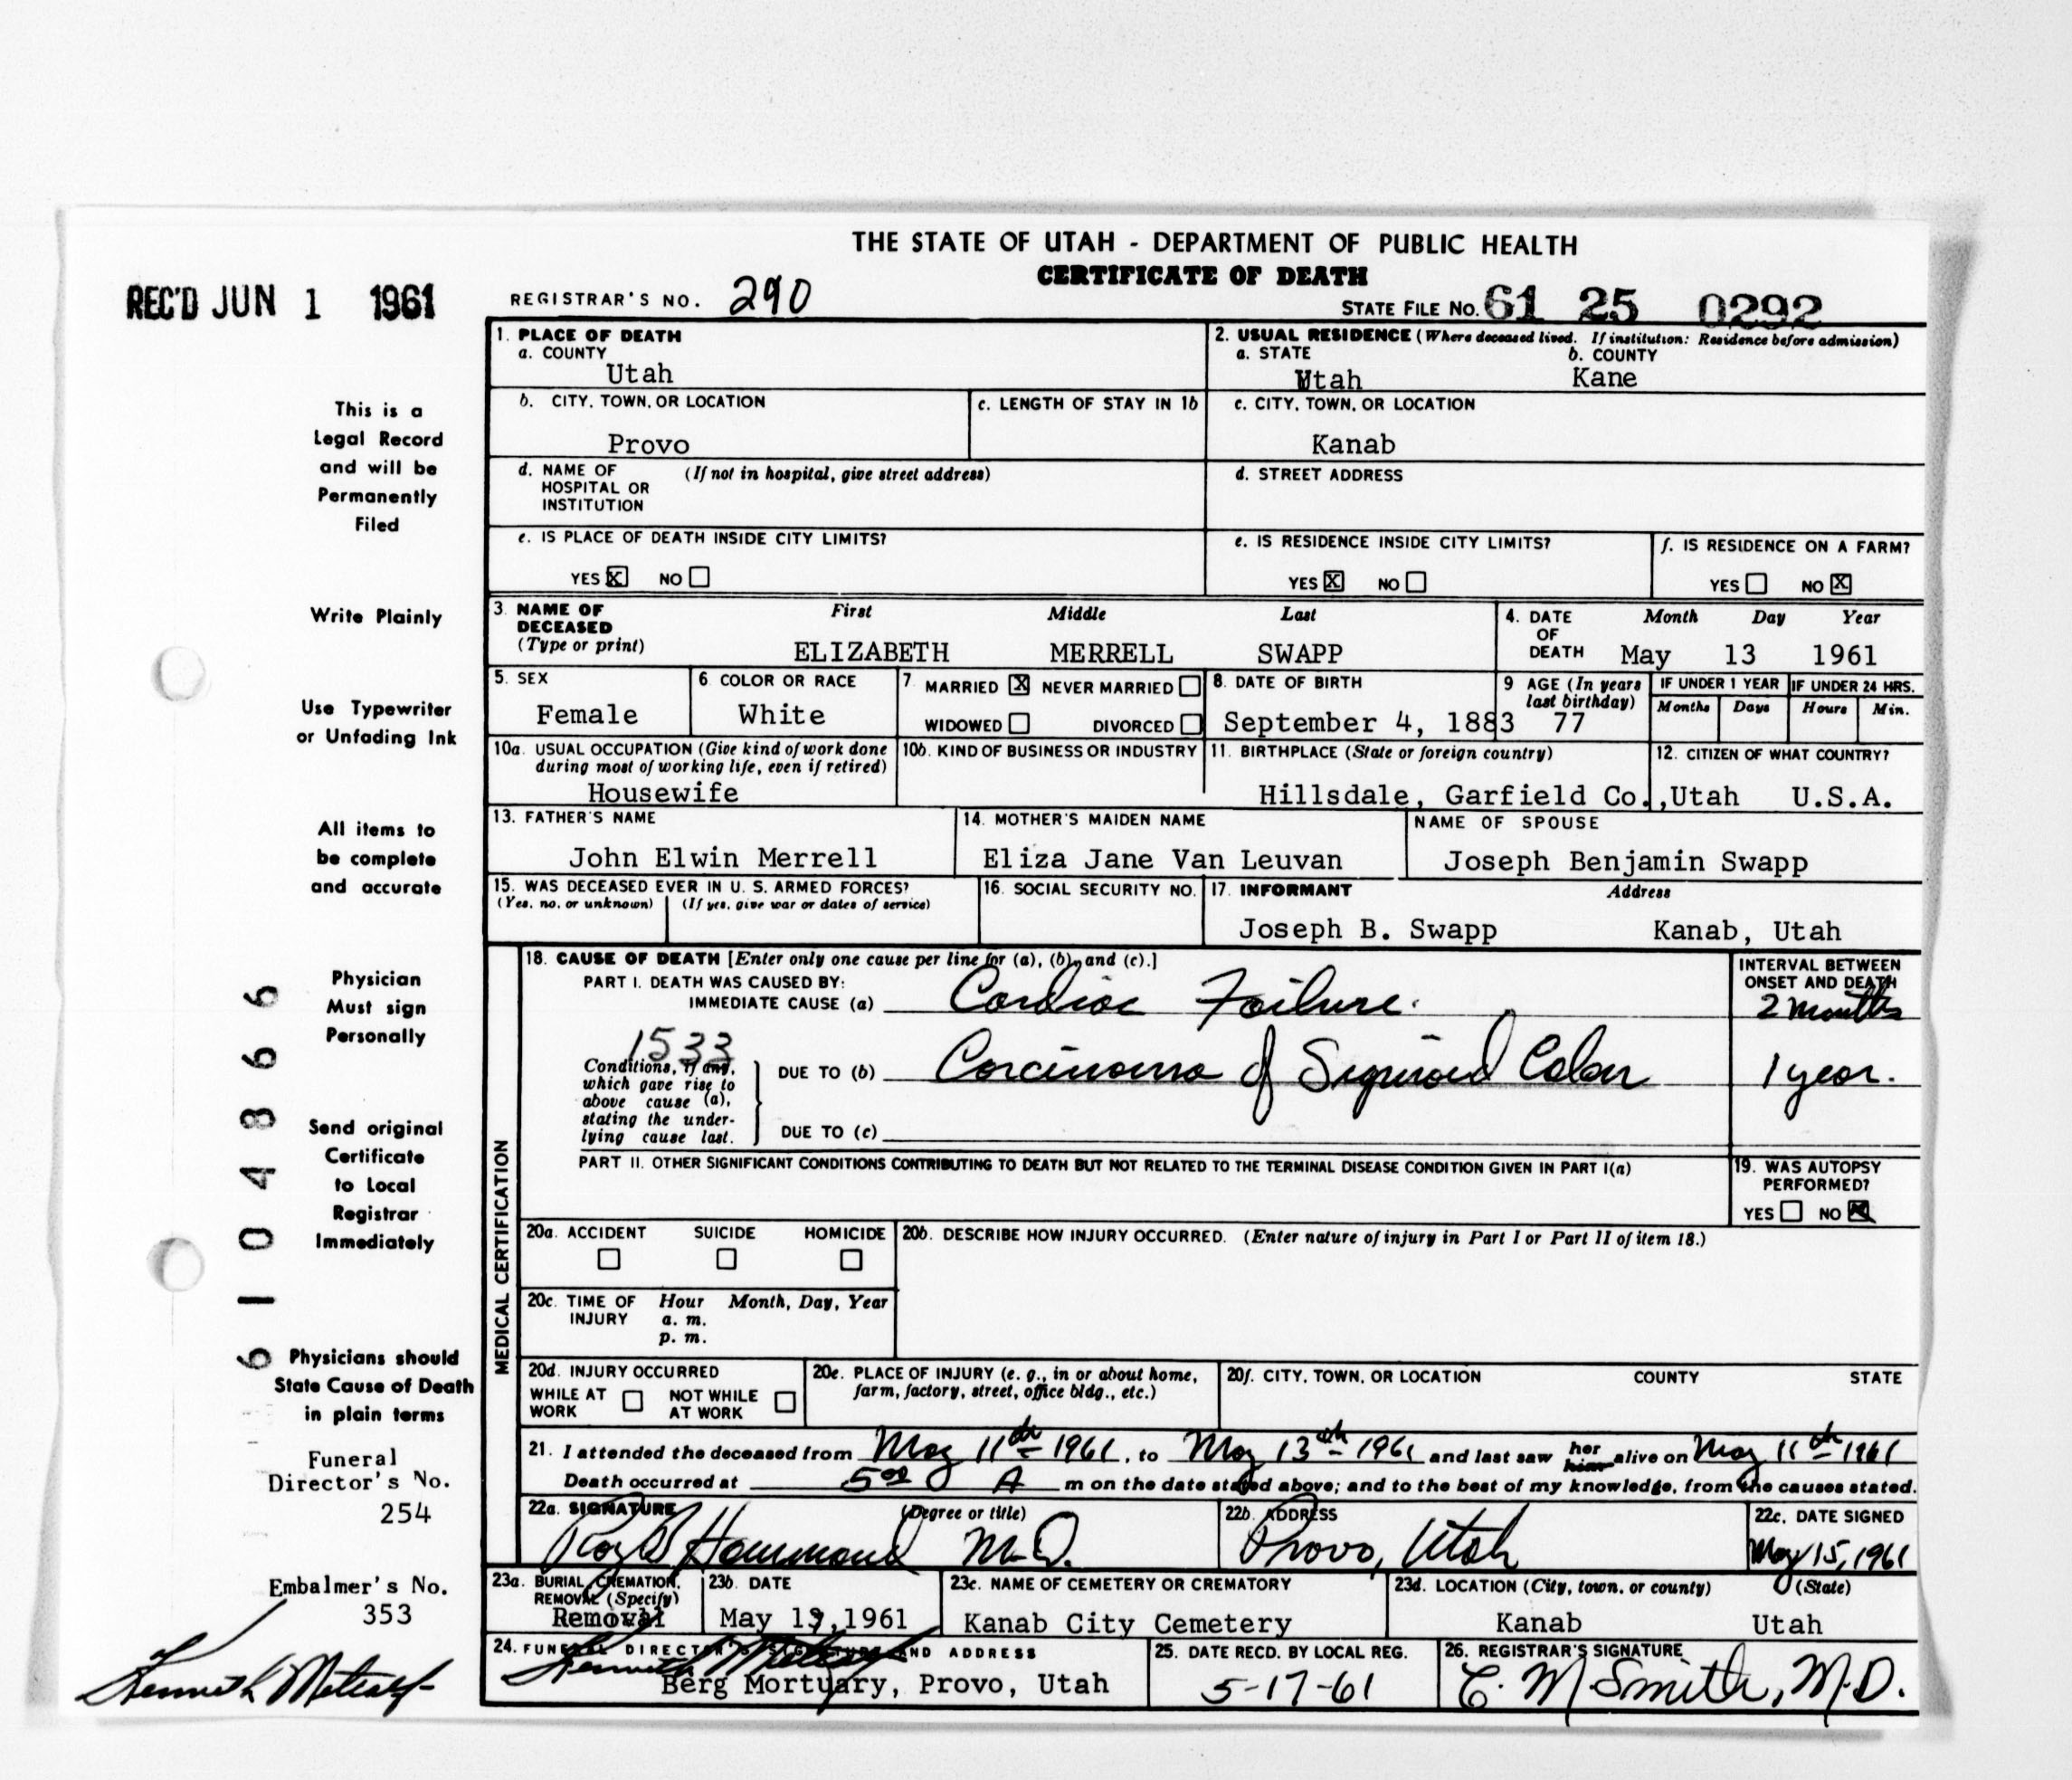 THE STATE OF UTAH - DEPARTMENT OF PUBLIC HEALTH
CERTIFICATE OF DEATH
REC'D JUN 1 1961
REGISTRAR'S NO. 290
STATE FILE NO. 61 25 0292
This is a
Legal Record
and will be
Permanently
Filed
Write Plainly
Use Typewriter
or Unfading Ink
All items to
be complete
and accurate
Physician
Must sign
Personally
Send original
Certificate
to Local
Registrar
Immediately
Physicians should
State Cause of Death
in plain terms
Funeral
Director's No.
254
Embalmer's No.
353
Kenneth Metcalf
6 1 0 4 8 6 6
1. PLACE OF DEATH
a. COUNTY
Utah
2. USUAL RESIDENCE (Where deceased lived. If institution: Residence before admission)
a. STATE b. COUNTY
Utah Kane
b. CITY, TOWN, OR LOCATION
Provo
c. LENGTH OF STAY IN 1b
c. CITY, TOWN, OR LOCATION
Kanab
d. NAME OF (If not in hospital, give street address)
HOSPITAL OR
INSTITUTION
d. STREET ADDRESS
e. IS PLACE OF DEATH INSIDE CITY LIMITS?
YES X NO
e. IS RESIDENCE INSIDE CITY LIMITS?
YES X NO
f. IS RESIDENCE ON A FARM?
YES NO X
3. NAME OF First Middle Last
DECEASED
(Type or print) ELIZABETH MERRELL SWAPP
4. DATE Month Day Year
OF
DEATH May 13 1961
5. SEX
Female
6. COLOR OR RACE
White
7 MARRIED X NEVER MARRIED
WIDOWED DIVORCED
8. DATE OF BIRTH
September 4, 1883
9 AGE (In years
last birthday)
77
IF UNDER 1 YEAR IF UNDER 24 HRS.
Months Days Hours Min.
10a. USUAL OCCUPATION (Give kind of work done
during most of working life, even if retired)
Housewife
10b. KIND OF BUSINESS OR INDUSTRY
11. BIRTHPLACE (State or foreign country)
Hillsdale, Garfield Co.,Utah
12. CITIZEN OF WHAT COUNTRY?
U.S.A.
13. FATHER'S NAME
John Elwin Merrell
14. MOTHER'S MAIDEN NAME
Eliza Jane Van Leuvan
NAME OF SPOUSE
Joseph Benjamin Swapp
15. WAS DECEASED EVER IN U. S. ARMED FORCES?
(Yes, no, or unknown) (If yes, give war or dates of service)
16. SOCIAL SECURITY NO.
17. INFORMANT Address
Joseph B. Swapp Kanab, Utah
MEDICAL CERTIFICATION
18. CAUSE OF DEATH [Enter only one cause per line for (a), (b), and (c).]
PART I. DEATH WAS CAUSED BY:
IMMEDIATE CAUSE (a) Cardiac Failure.
INTERVAL BETWEEN
ONSET AND DEATH
2 months
1533
Conditions, if any,
which gave rise to
above cause (a),
stating the under-
lying cause last.
DUE TO (b) Carcinoma of Sigmoid Colon
1 year.
DUE TO (c)
PART II. OTHER SIGNIFICANT CONDITIONS CONTRIBUTING TO DEATH BUT NOT RELATED TO THE TERMINAL DISEASE CONDITION GIVEN IN PART I(a)
19. WAS AUTOPSY
PERFORMED?
YES NO X
20a. ACCIDENT SUICIDE HOMICIDE
20b. DESCRIBE HOW INJURY OCCURRED. (Enter nature of injury in Part I or Part II of item 18.)
20c. TIME OF Hour Month, Day, Year
INJURY a. m.
p. m.
20d. INJURY OCCURRED
WHILE AT NOT WHILE
WORK AT WORK
20e. PLACE OF INJURY (e. g., in or about home,
farm, factory, street, office bldg., etc.)
20f. CITY, TOWN, OR LOCATION COUNTY STATE
21. I attended the deceased from May 11th 1961, to May 13th 1961 and last saw her him alive on May 11th 1961
Death occurred at 5:00 A m on the date stated above; and to the best of my knowledge, from the causes stated.
22a. SIGNATURE (Degree or title)
Roy B Hammond M.D.
22b. ADDRESS
Provo, Utah
22c. DATE SIGNED
May 15, 1961
23a. BURIAL, CREMATION,
REMOVAL (Specify)
Removal
23b. DATE
May 17,1961
23c. NAME OF CEMETERY OR CREMATORY
Kanab City Cemetery
23d. LOCATION (City, town, or county) (State)
Kanab Utah
24. FUNERAL DIRECTOR'S SIGNATURE AND ADDRESS
Kenneth Metcalf
Berg Mortuary, Provo, Utah
25. DATE RECD. BY LOCAL REG.
5-17-61
26. REGISTRAR'S SIGNATURE
C. M Smith, M.D.